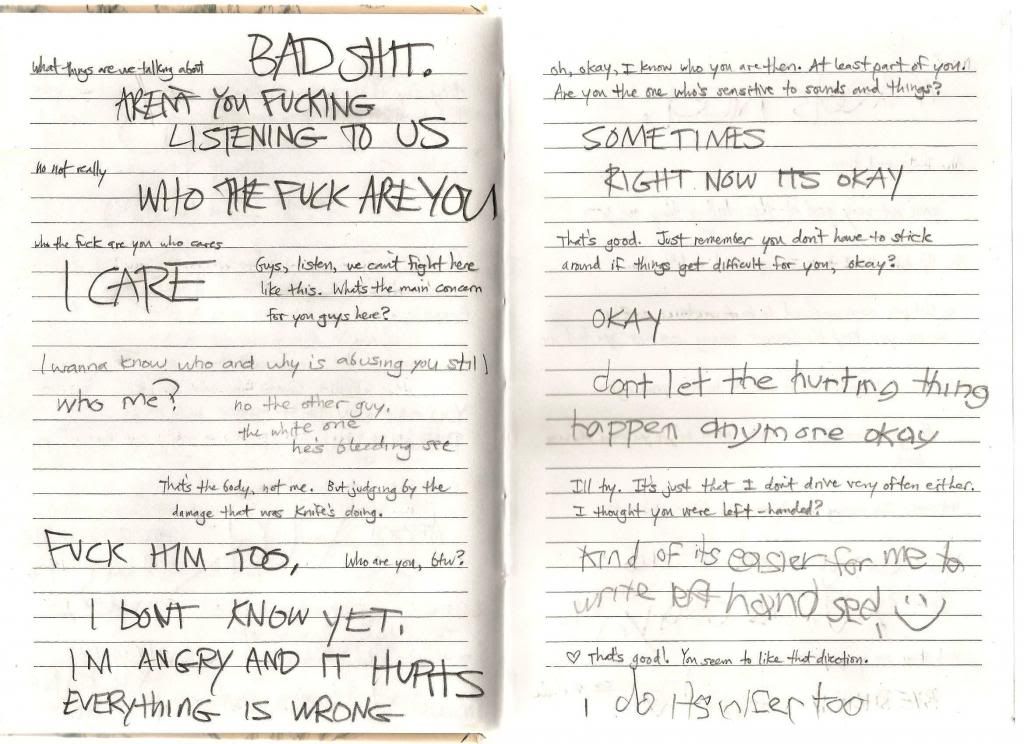 What things are we talking about BAD SHIT.
AREN'T YOU FUCKING
LISTENING TO US
no not really
WHO THE FUCK ARE YOU
who the fuck are you who cares
I CARE
Guys, listen, we can't fight here
like this. What's the main concern
for you guys here?
I wanna know who and why is abusing you still
who me?
no the other guy.
the white one
he's bleeding see
That's the body, not me. But judging by the
damage that was Knife's doing.
FUCK HIM TOO, Who are you, btw?
I DONT KNOW YET.
IM ANGRY AND IT HURTS
EVERYthING IS WRONG
oh, okay, I know who you are then. At least part of you.
Are you the one who's sensitive to sounds and things?
SOMETIMES
RIGHT NOW ITS OKAY
That's good. Just remember you don't have to stick
around if things get difficult for you, okay?
OKAY
dont let the hurting thing
happen anymore okay
I'll try. It's just that I don't drive very often either.
I thought you were left-handed?
kind of its easier for me to
write left hand see! :)
♡ That's good! You seem to like that direction.
i do its nicer too